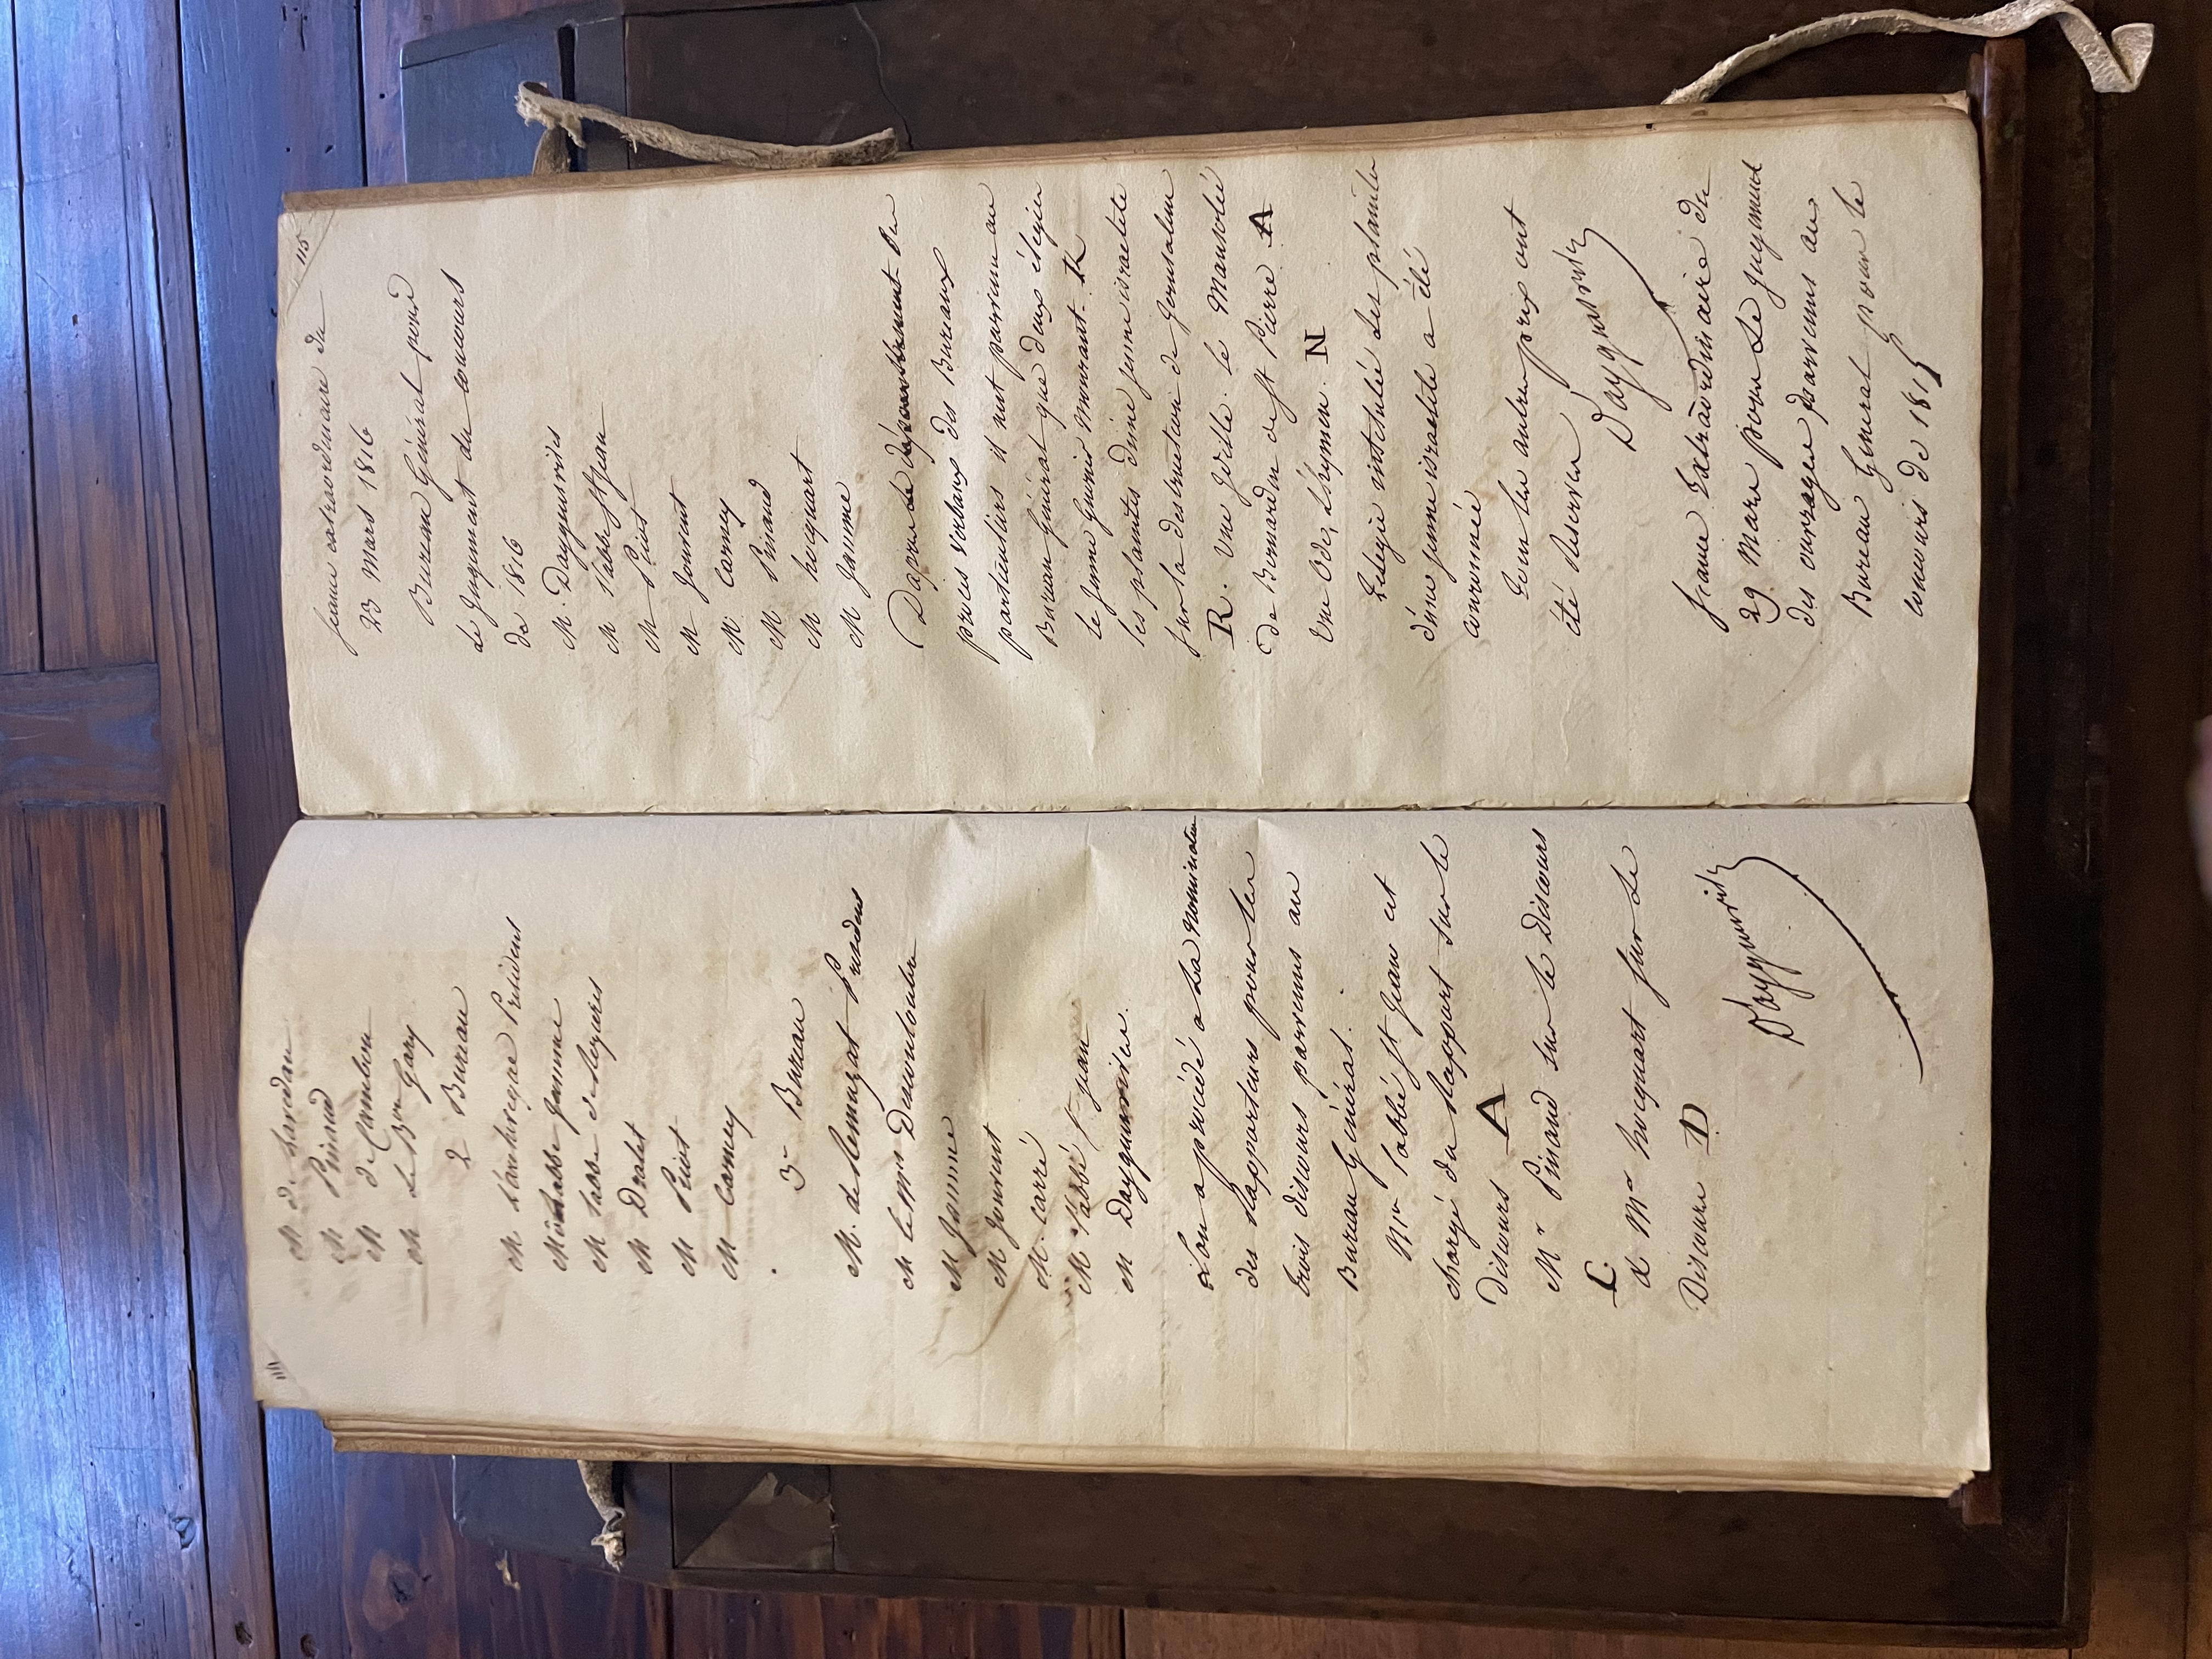 M de
M Pinaud
M de Cambon
M Le Bon Gary
2 Bureau
M L'archevêque Président
M l'abbé Jamme
M l'abbé de Seguies
M Dralet
M Picot
M Carney
3e Bureau
M. de Remuzat President
M le Mis
M Jamme
M Jouvent
M. Carré
M l'abbé St jean
M Dayguesvives.
L'on a procédé a La nomination
des Rapporteurs pour les
trois discours parvenus au
Bureau Général.
Mr l'abbé St Jean est
chargé du Rapport sur le
Discours A
Mr Pinaud sur le Discours
C.
& Mr hocquart sur Le
Discours D
Dayguesvives
115
Seance extraordinaire du
23 Mars 1816
Bureau Général pour
le Jugement du concours
de 1816
M. Dayguesvives
M l'abbé St Jean
M Picot
M Jouvent
M. Carney
M. Pinaud
M hocquart
M Jamme
Dapres le dépouillement des
procès Verbaux des Bureaux
particuliers il n'est parvenu au
Bureau Général que deux élégies
le Jeune Guerrier Mourant. K
les plaintes d'une jeune israelite
sur la destruction de Jerusalem
R. Une Idille. le Mausolée
de Bernardin de St Pierre A
Une Ode, L'hymen. N
L'elegie intitulée Les plaintes
d'une jeune israelite a été
couronnée
Tous les autres prix ont
été Réservés
Dayguesvives
Seance Extraordinaire du
29 Mars pour Le Jugement
des ouvrages parvenus au
Bureau General pour le
Concours de 181